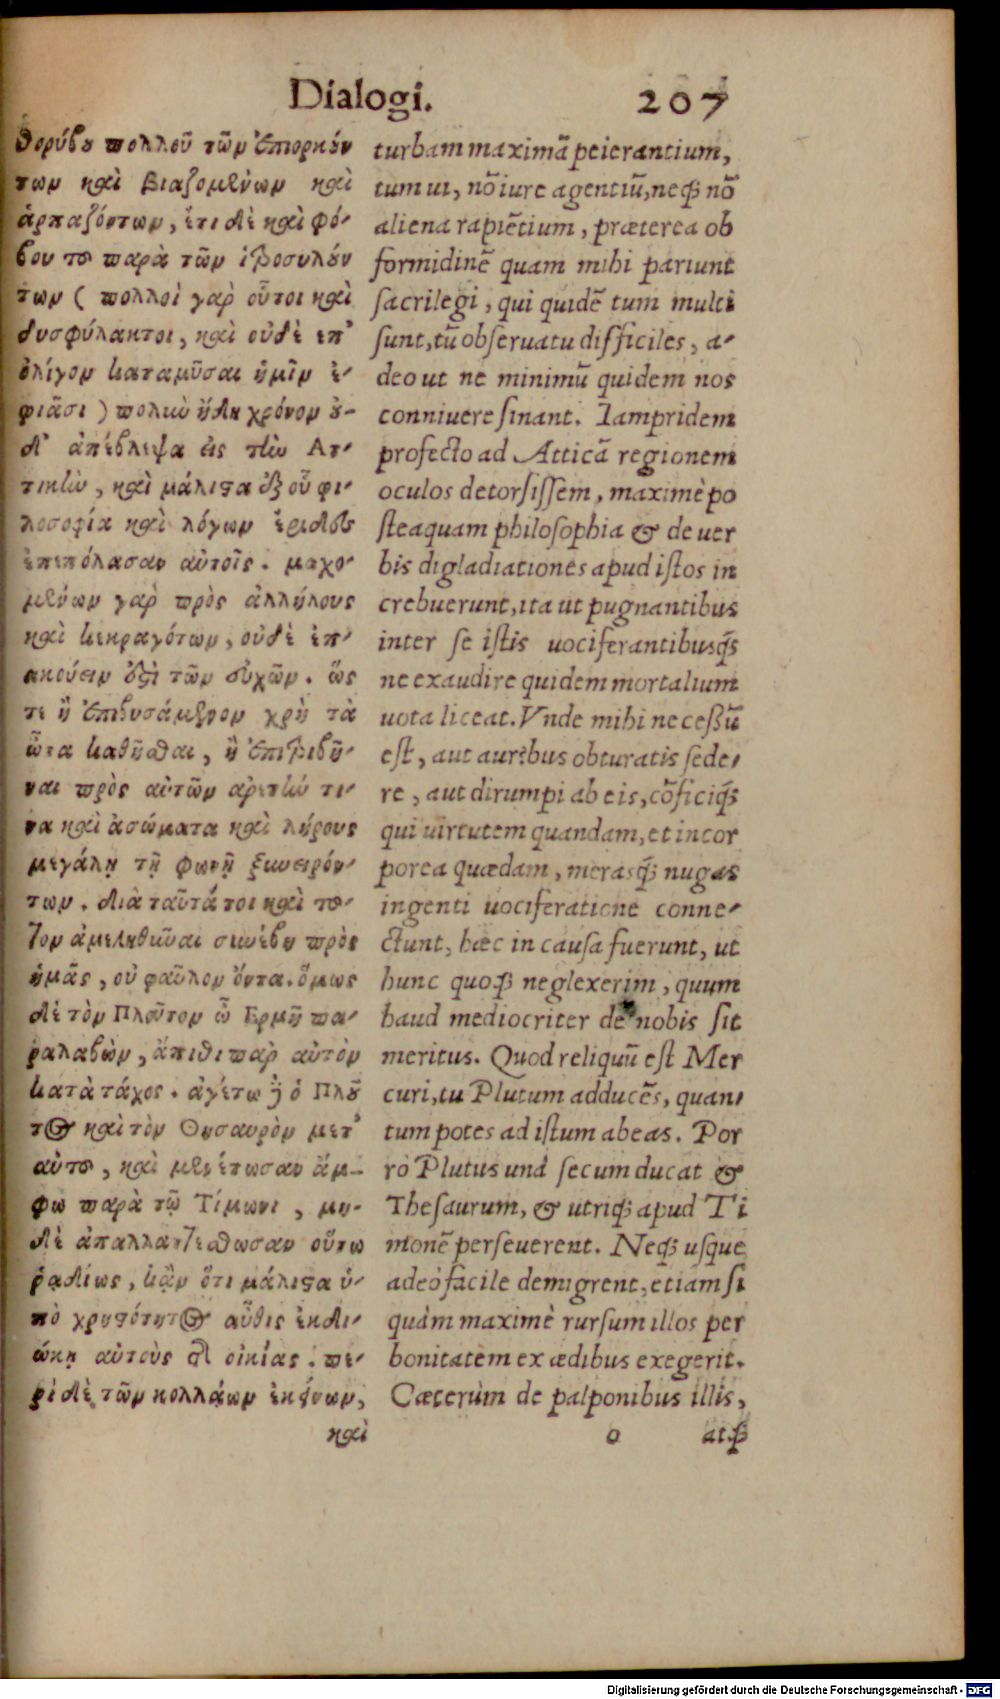 Dialogi. 207
θορύβου πολλοῦ τῶν ἐπιορκούν
των καὶ βιαζομένων καὶ
ἁρπαζόντων, ἔτι δὲ καὶ φό-
βου το παρὰ τῶν ἱεροσυλούν
των ( πολλοὶ γὰρ οὗτοι καὶ
δυσφύλακτοι, καὶ οὐδὲ ἐπ'
ὀλίγον καταμῦσαι ἡμῖν ἐ-
φιᾶσι ) πολὺν ἤδη χρόνον οὐ-
δ' ἀπέβλεψα εἰς τὴν Ἀτ-
τικὴν, καὶ μάλιστα ἐξ οὗ φι-
λοσοφία καὶ λόγων ἔριδες
ἐπεπόλασαν αὐτοῖς. μαχο-
μένων γὰρ πρὸς ἀλλήλους
καὶ κεκραγότων, οὐδὲ ἐπ-
ακούειν ἐστὶ τῶν εὐχῶν. ὥς
τε ἢ ἐπιβυσάμενον χρὴ τὰ
ὦτα καθῆσθαι, ἢ ἐπιτριβῆ-
ναι πρὸς αὐτῶν ἀρετήν τι-
να καὶ ἀσώματα καὶ λήρους
μεγάλῃ τῇ φωνῇ ξυνειρόν-
των. διὰ ταῦτά τοι καὶ τοῦ-
τον ἀμεληθῆναι συνέβη πρὸς
ἡμᾶς, οὐ φαῦλον ὄντα. ὅμως
δὲ τὸν Πλοῦτον ὦ Ερμῆ πα-
ραλαβὼν, ἄπιθι παρ' αὐτὸν
κατὰ τάχος. ἀγέτω δὲ ὁ Πλοῦ
τος καὶ τὸν Θησαυρὸν μετ'
αὐτοῦ, καὶ μενέτωσαν ἄμ-
φω παρὰ τῷ Τίμωνι, μη-
δὲ ἀπαλλαττέσθωσαν οὕτω
ῥᾳδίως, κἂν ὅτι μάλιστα ὑ-
πὸ χρηστότητος αὖθις ἐκδι-
ώκῃ αὐτοὺς τῆς οἰκίας. πε-
ρὶ δὲ τῶν κολάκων ἐκείνων,
καὶ
turbam maximã peierantium,
tum ui, nõ iure agentiũ, neq̃ nõ
aliena rapiẽtium, præterea ob
formidinẽ quam mihi pariunt
sacrilegi, qui quidẽ tum multi
sunt, tũ obseruatu difficiles, a-
deo ut ne minimũ quidem nos
conniuere sinant. Iampridem
profecto ad Atticã regionem
oculos detorsissem, maximè po
steaquam philosophia & de uer
bis digladiationes apud istos in
crebuerunt, ita ut pugnantibus
inter se istis uociferantibusq̃
ne exaudire quidem mortalium
uota liceat. Vnde mihi necessũ
est, aut auribus obturatis sede-
re, aut dirumpi ab eis, cõficiq̃
qui uirtutem quandam, et incor
porea quædam, merasq̃ nugas
ingenti uociferatione conne-
ctunt, hæc in causa fuerunt, ut
hunc quoq̃ neglexerim, quum
haud mediocriter de nobis sit
meritus. Quod reliquũ est Mer
curi, tu Plutum adducẽs, quan-
tum potes ad istum abeas. Por
rò Plutus unà secum ducat &
Thesaurum, & utriq̃ apud Ti
monẽ perseuerent. Neq̃ usque
adeò facile demigrent, etiam si
quàm maximè rursum illos per
bonitatem ex ædibus exegerit.
Cæterùm de palponibus illis,
o atq̃
Digitalisierung gefördert durch die Deutsche Forschungsgemeinschaft - DFG